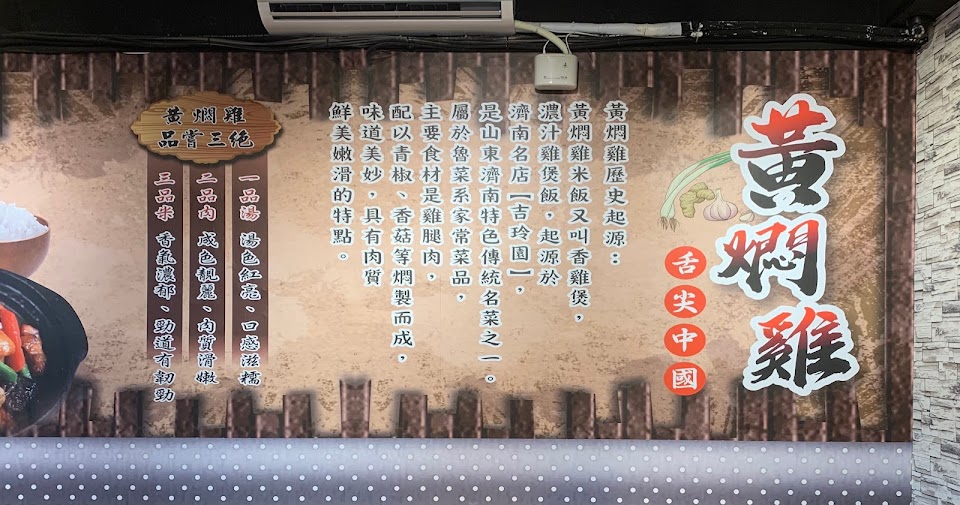 黃燜雞
舌尖中國
黃燜雞歷史起源：
黃燜雞米飯又叫香雞煲，
濃汁雞煲飯，起源於
濟南名店【吉玲園】，
是山東濟南特色傳統名菜之一。
屬於魯菜系家常菜品，
主要食材是雞腿肉，
配以青椒、香菇等燜製而成，
味道美妙，具有肉質
鮮美嫩滑的特點。
黃燜雞
品嘗三绝
一品湯 湯色紅亮、口感滋糯
二品肉 成色靚麗、肉質滑嫩
三品米 香氣濃郁、勁道有韌勁